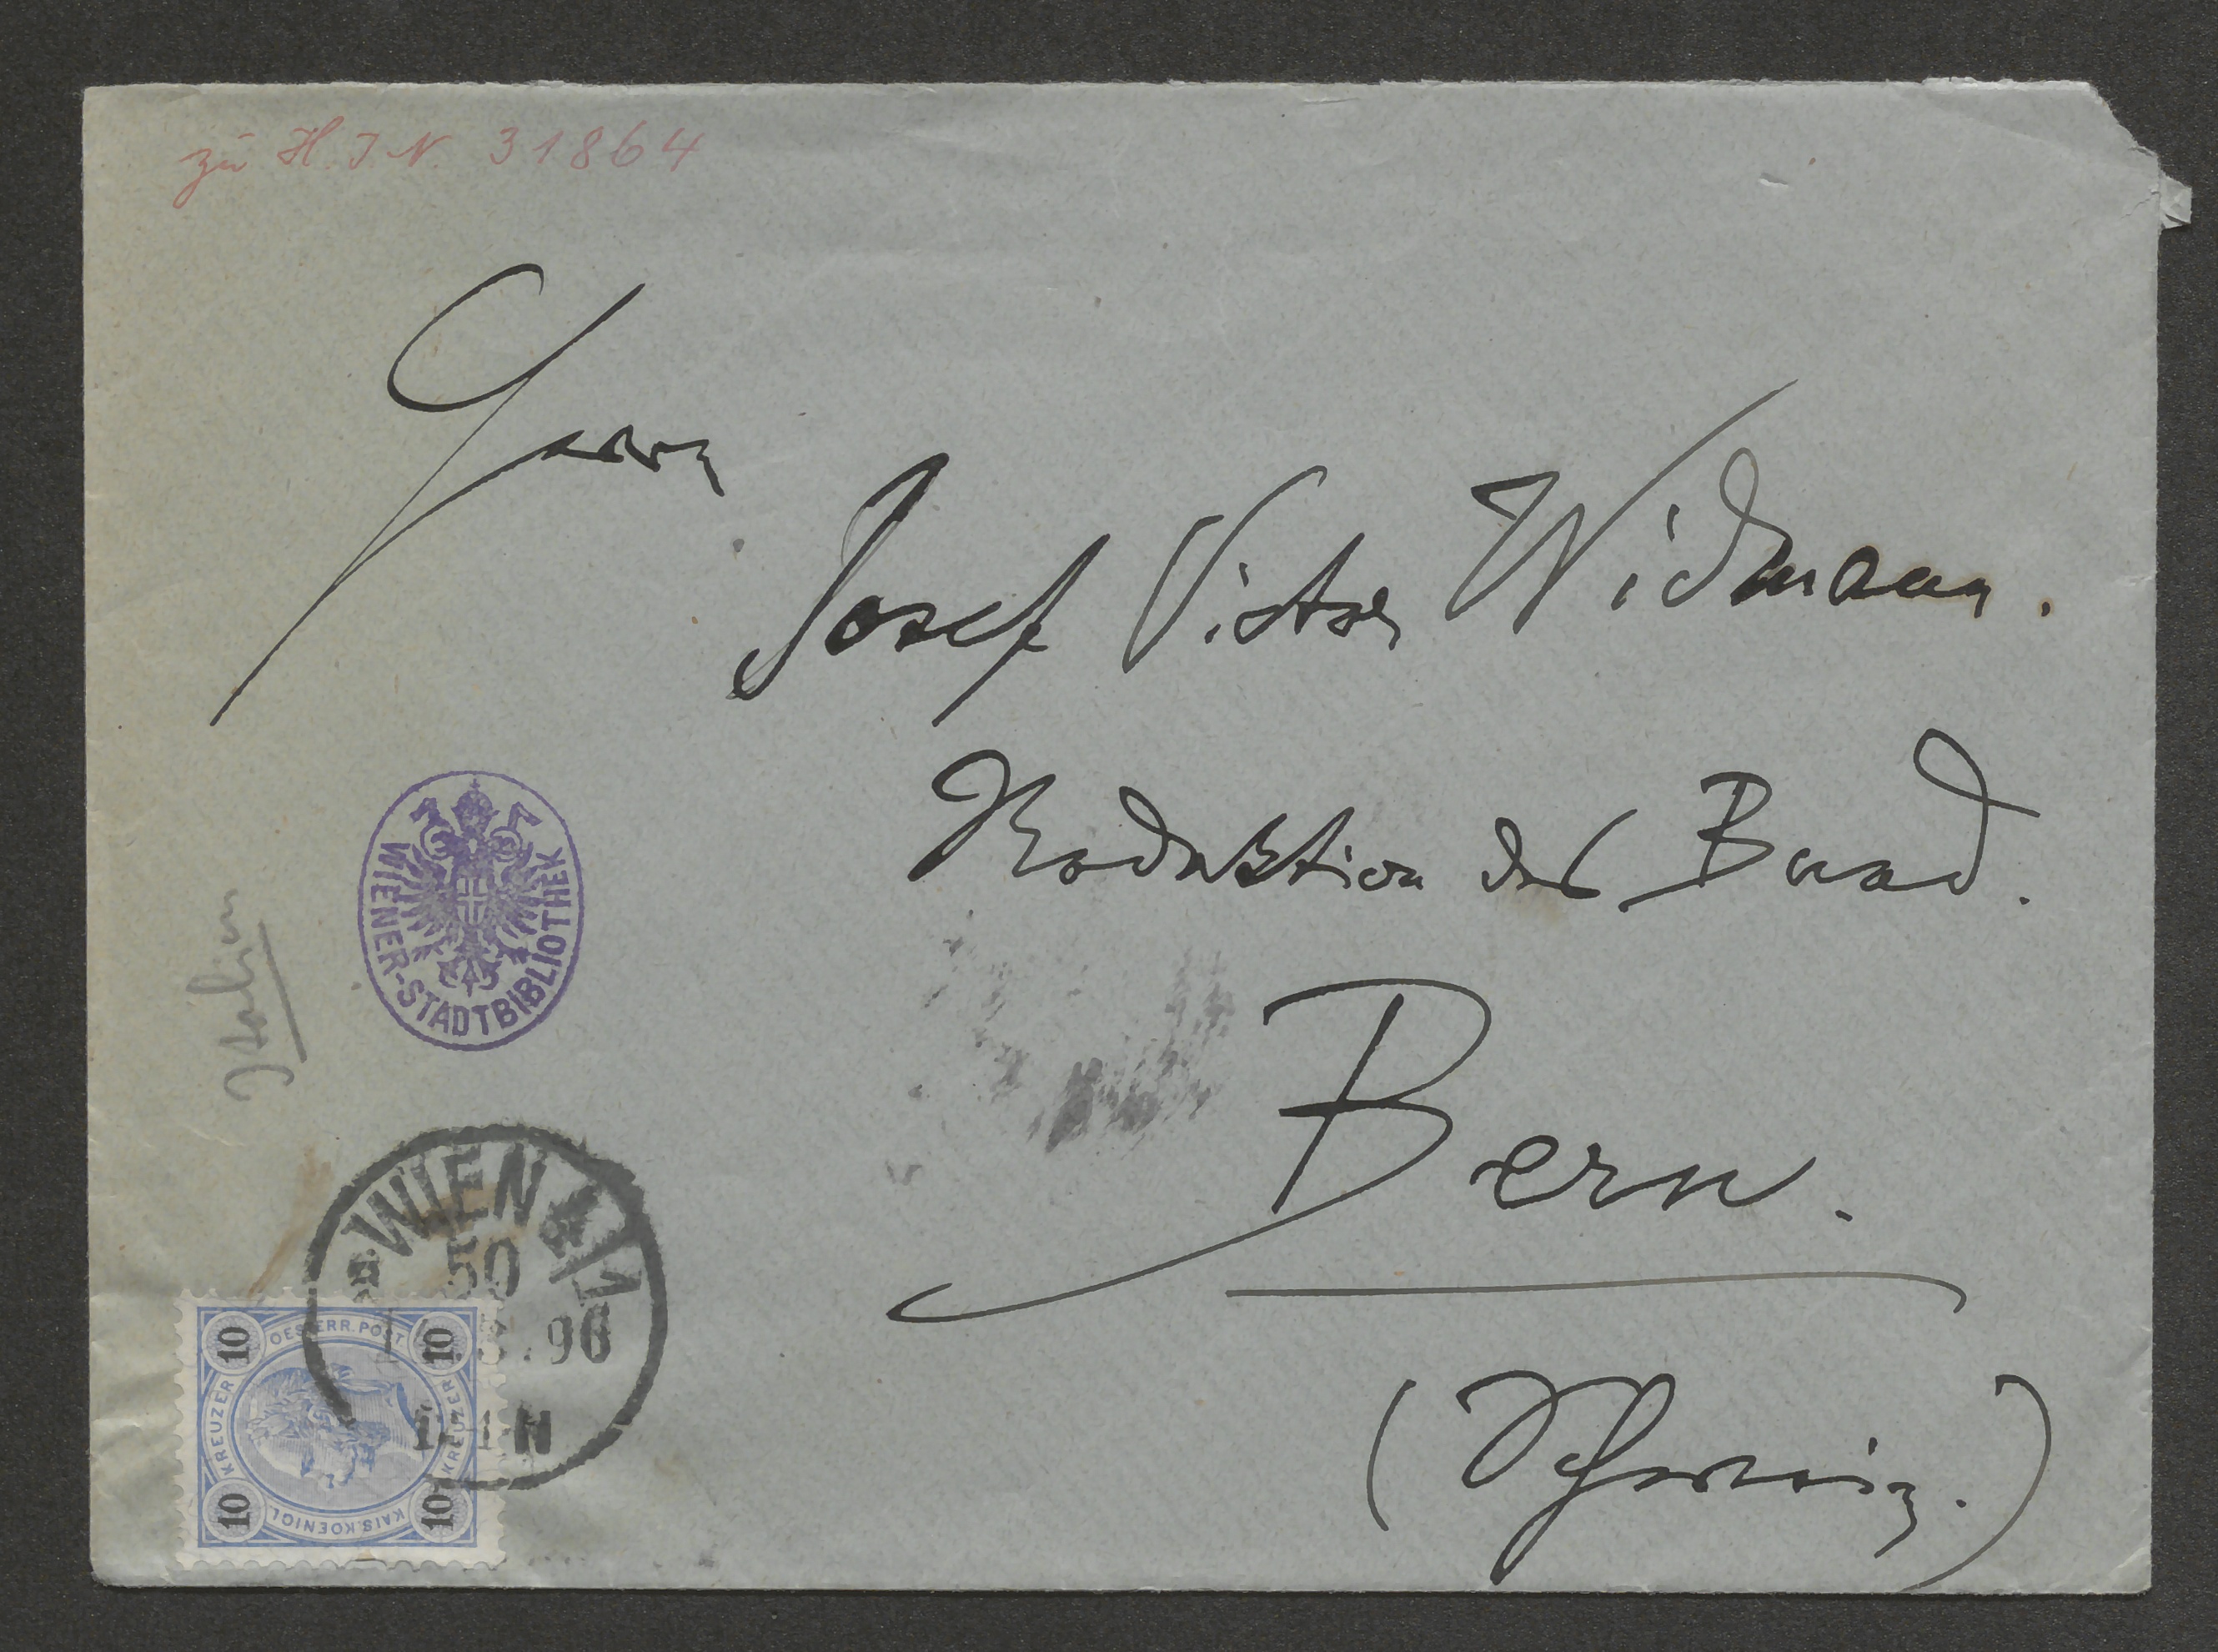 zu H. I. N. 31864
Herrn
Josef Victor Widmann.
Redaktion des Bund.
Bern.
(Schweiz.)
Italien
WIENER-STADTBIBLIOTHEK
WIEN 4/1
50
96
1-1N
OESTERR. POST
KREUZER
KREUZER
KAIS. KOENIGL
10
10
10
10